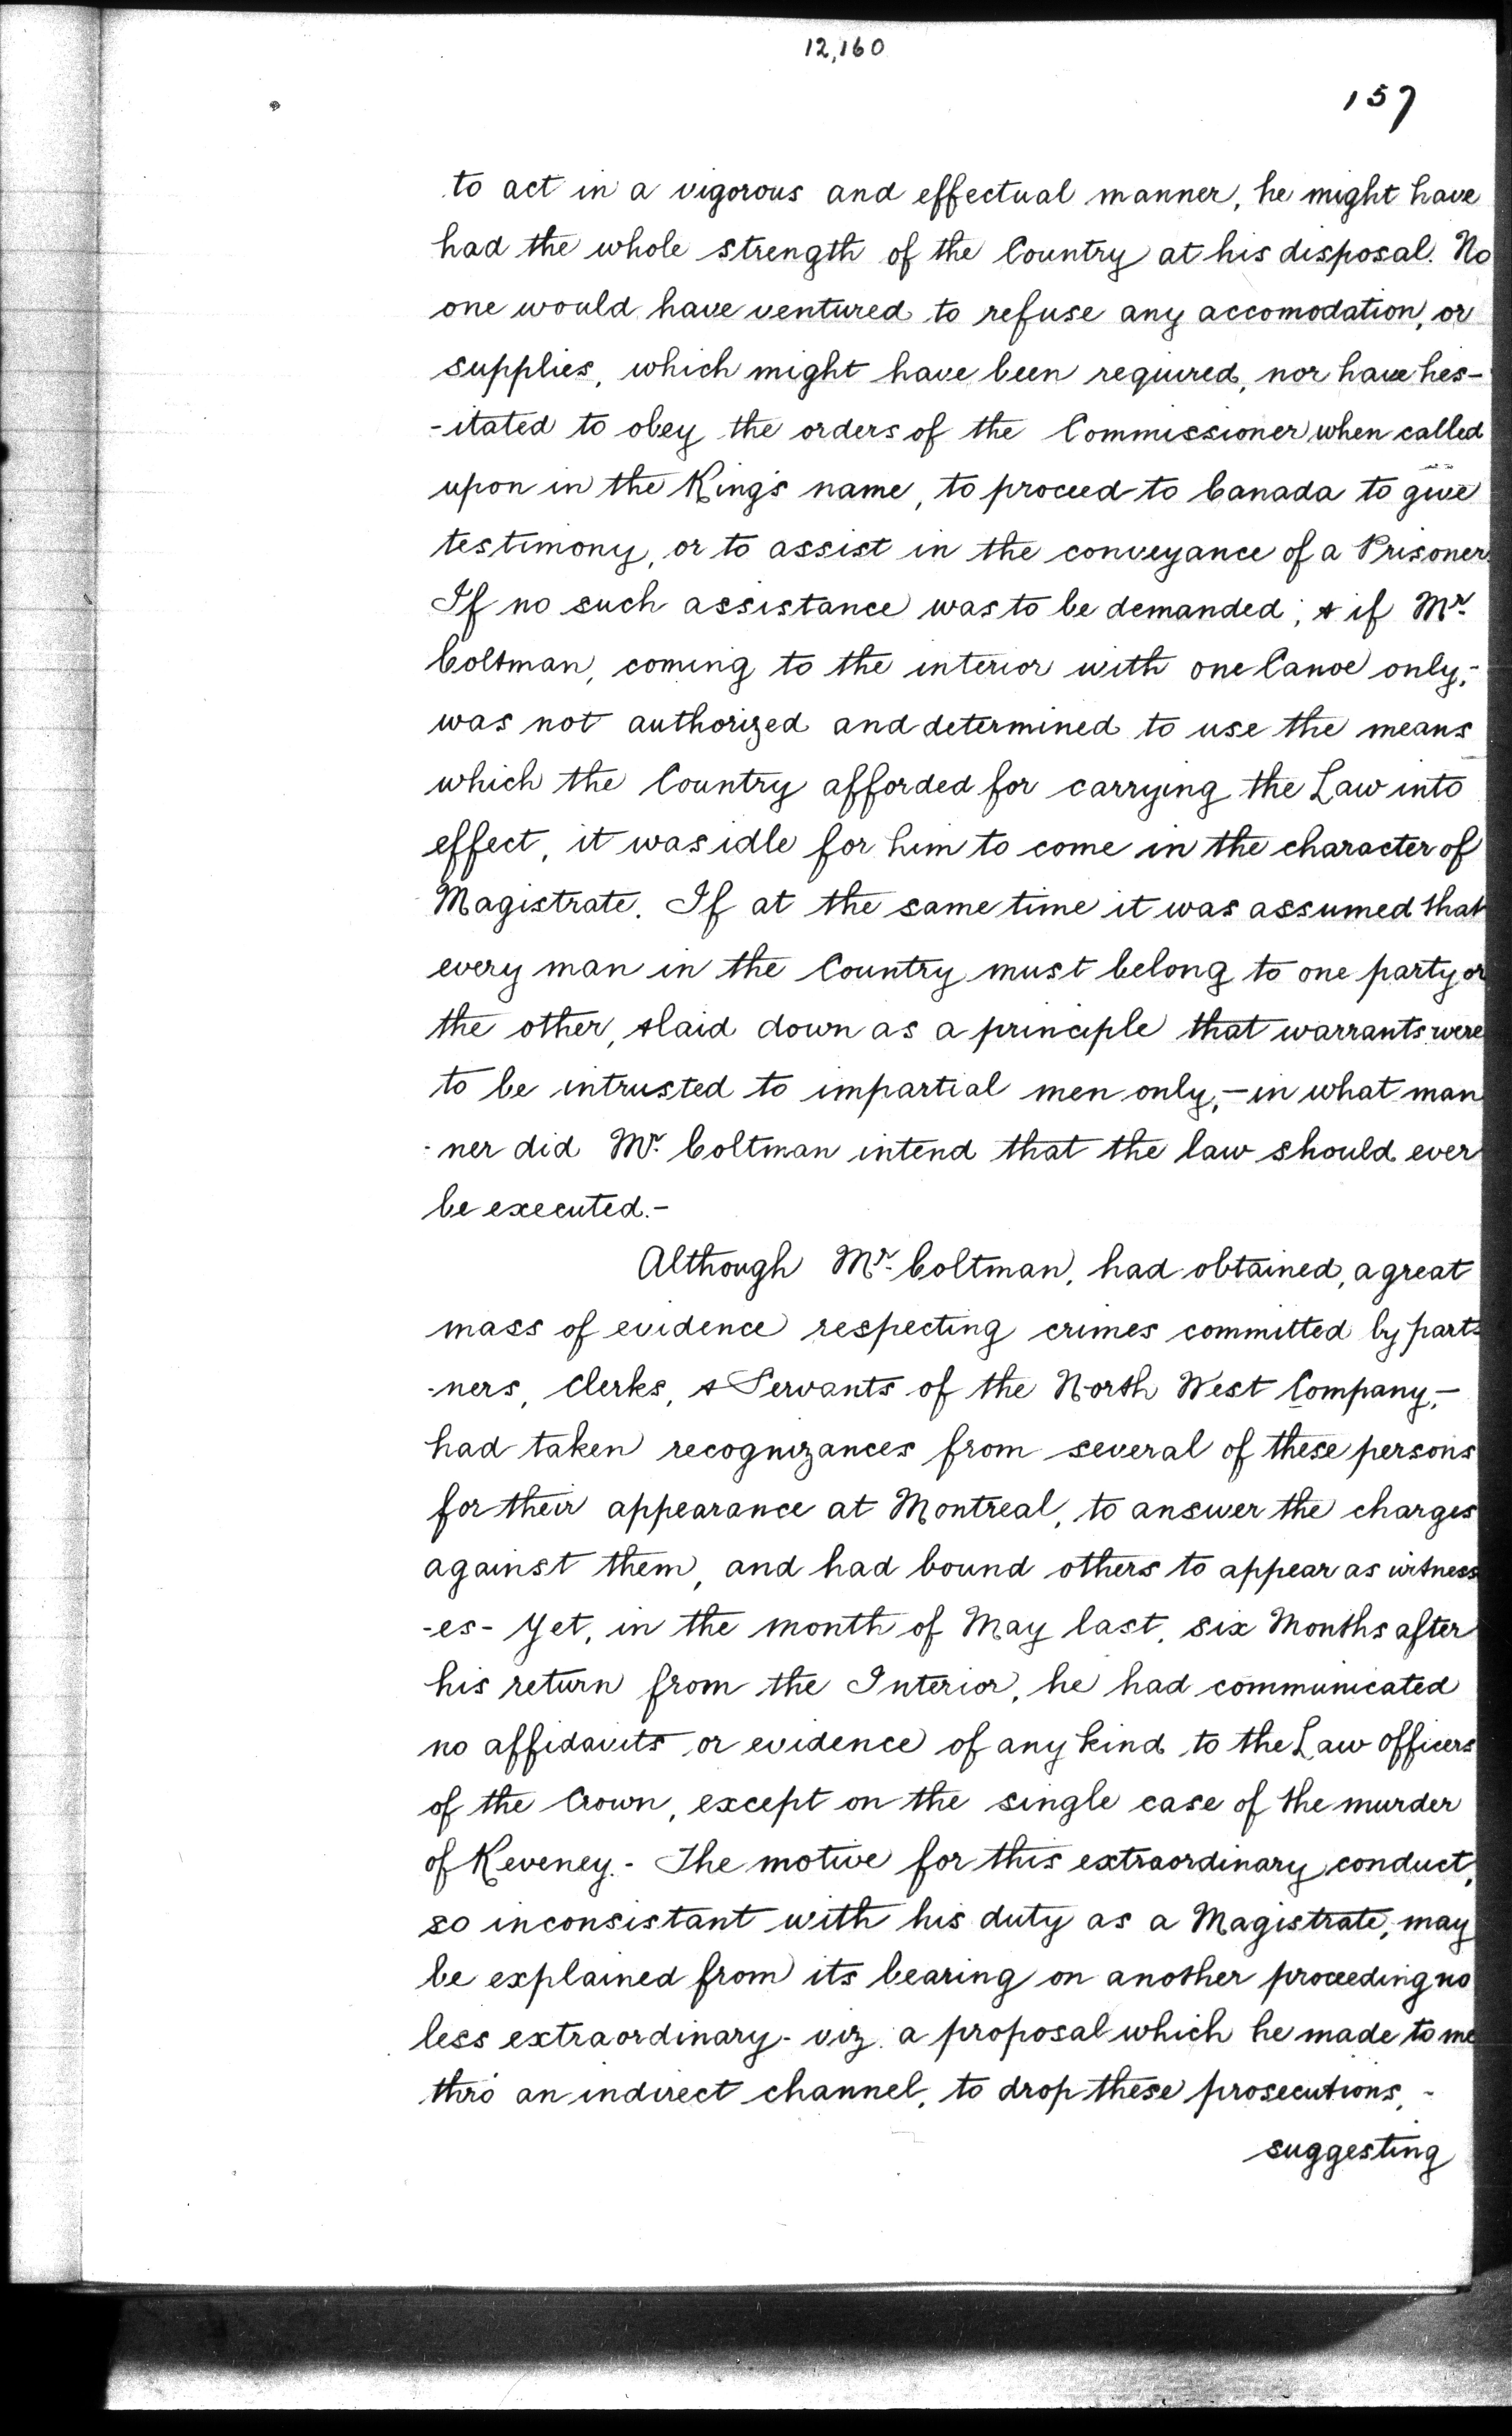 12,160
157
to act in a vigorous and effectual manner, he might have
had the whole strength of the Country at his disposal. No
one would have ventured to refuse any accomodation, or
supplies, which might have been required, nor have hes-
-itated to obey the orders of the Commissioner when called
upon in the King's name, to proceed to Canada to give
testimony, or to assist in the conveyance of a Prisoner.
If no such assistance was to be demanded; & if Mr.
Coltman, coming to the interior with one Canoe only;-
was not authorized and determined to use the means
which the Country afforded for carrying the Law into
effect, it was idle for him to come in the character of
Magistrate. If at the same time it was assumed that
every man in the Country must belong to one party or
the other, & laid down as a principle that warrants were
to be intrusted to impartial men only,-in what man
-ner did Mr. Coltman intend that the law should ever
be executed.-
Although Mr. Coltman, had obtained, a great
mass of evidence respecting crimes committed by part-
-ners, Clerks, & Servants of the North West Company,-
had taken recognizances from several of these persons
for their appearance at Montreal, to answer the charges
against them, and had bound others to appear as witness
-es- Yet, in the month of May last, six Months after
his return from the Interior, he had communicated
no affidavits or evidence of any kind to the Law Officers
of the Crown, except on the single case of the murder
of Keveney.- The motive for this extraordinary conduct,
so inconsistant with his duty as a Magistrate, may
be explained from its bearing on another proceeding no
less extraordinary- viz. a proposal which he made to me
thro' an indirect channel, to drop these prosecutions,-
suggesting